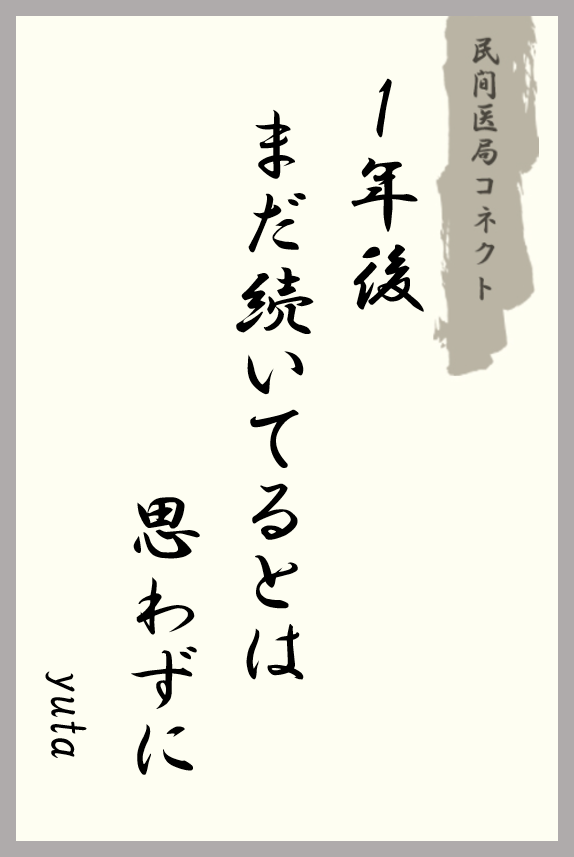 民間医局コネクト
1年後
まだ続いてるとは
思わずに
yuta